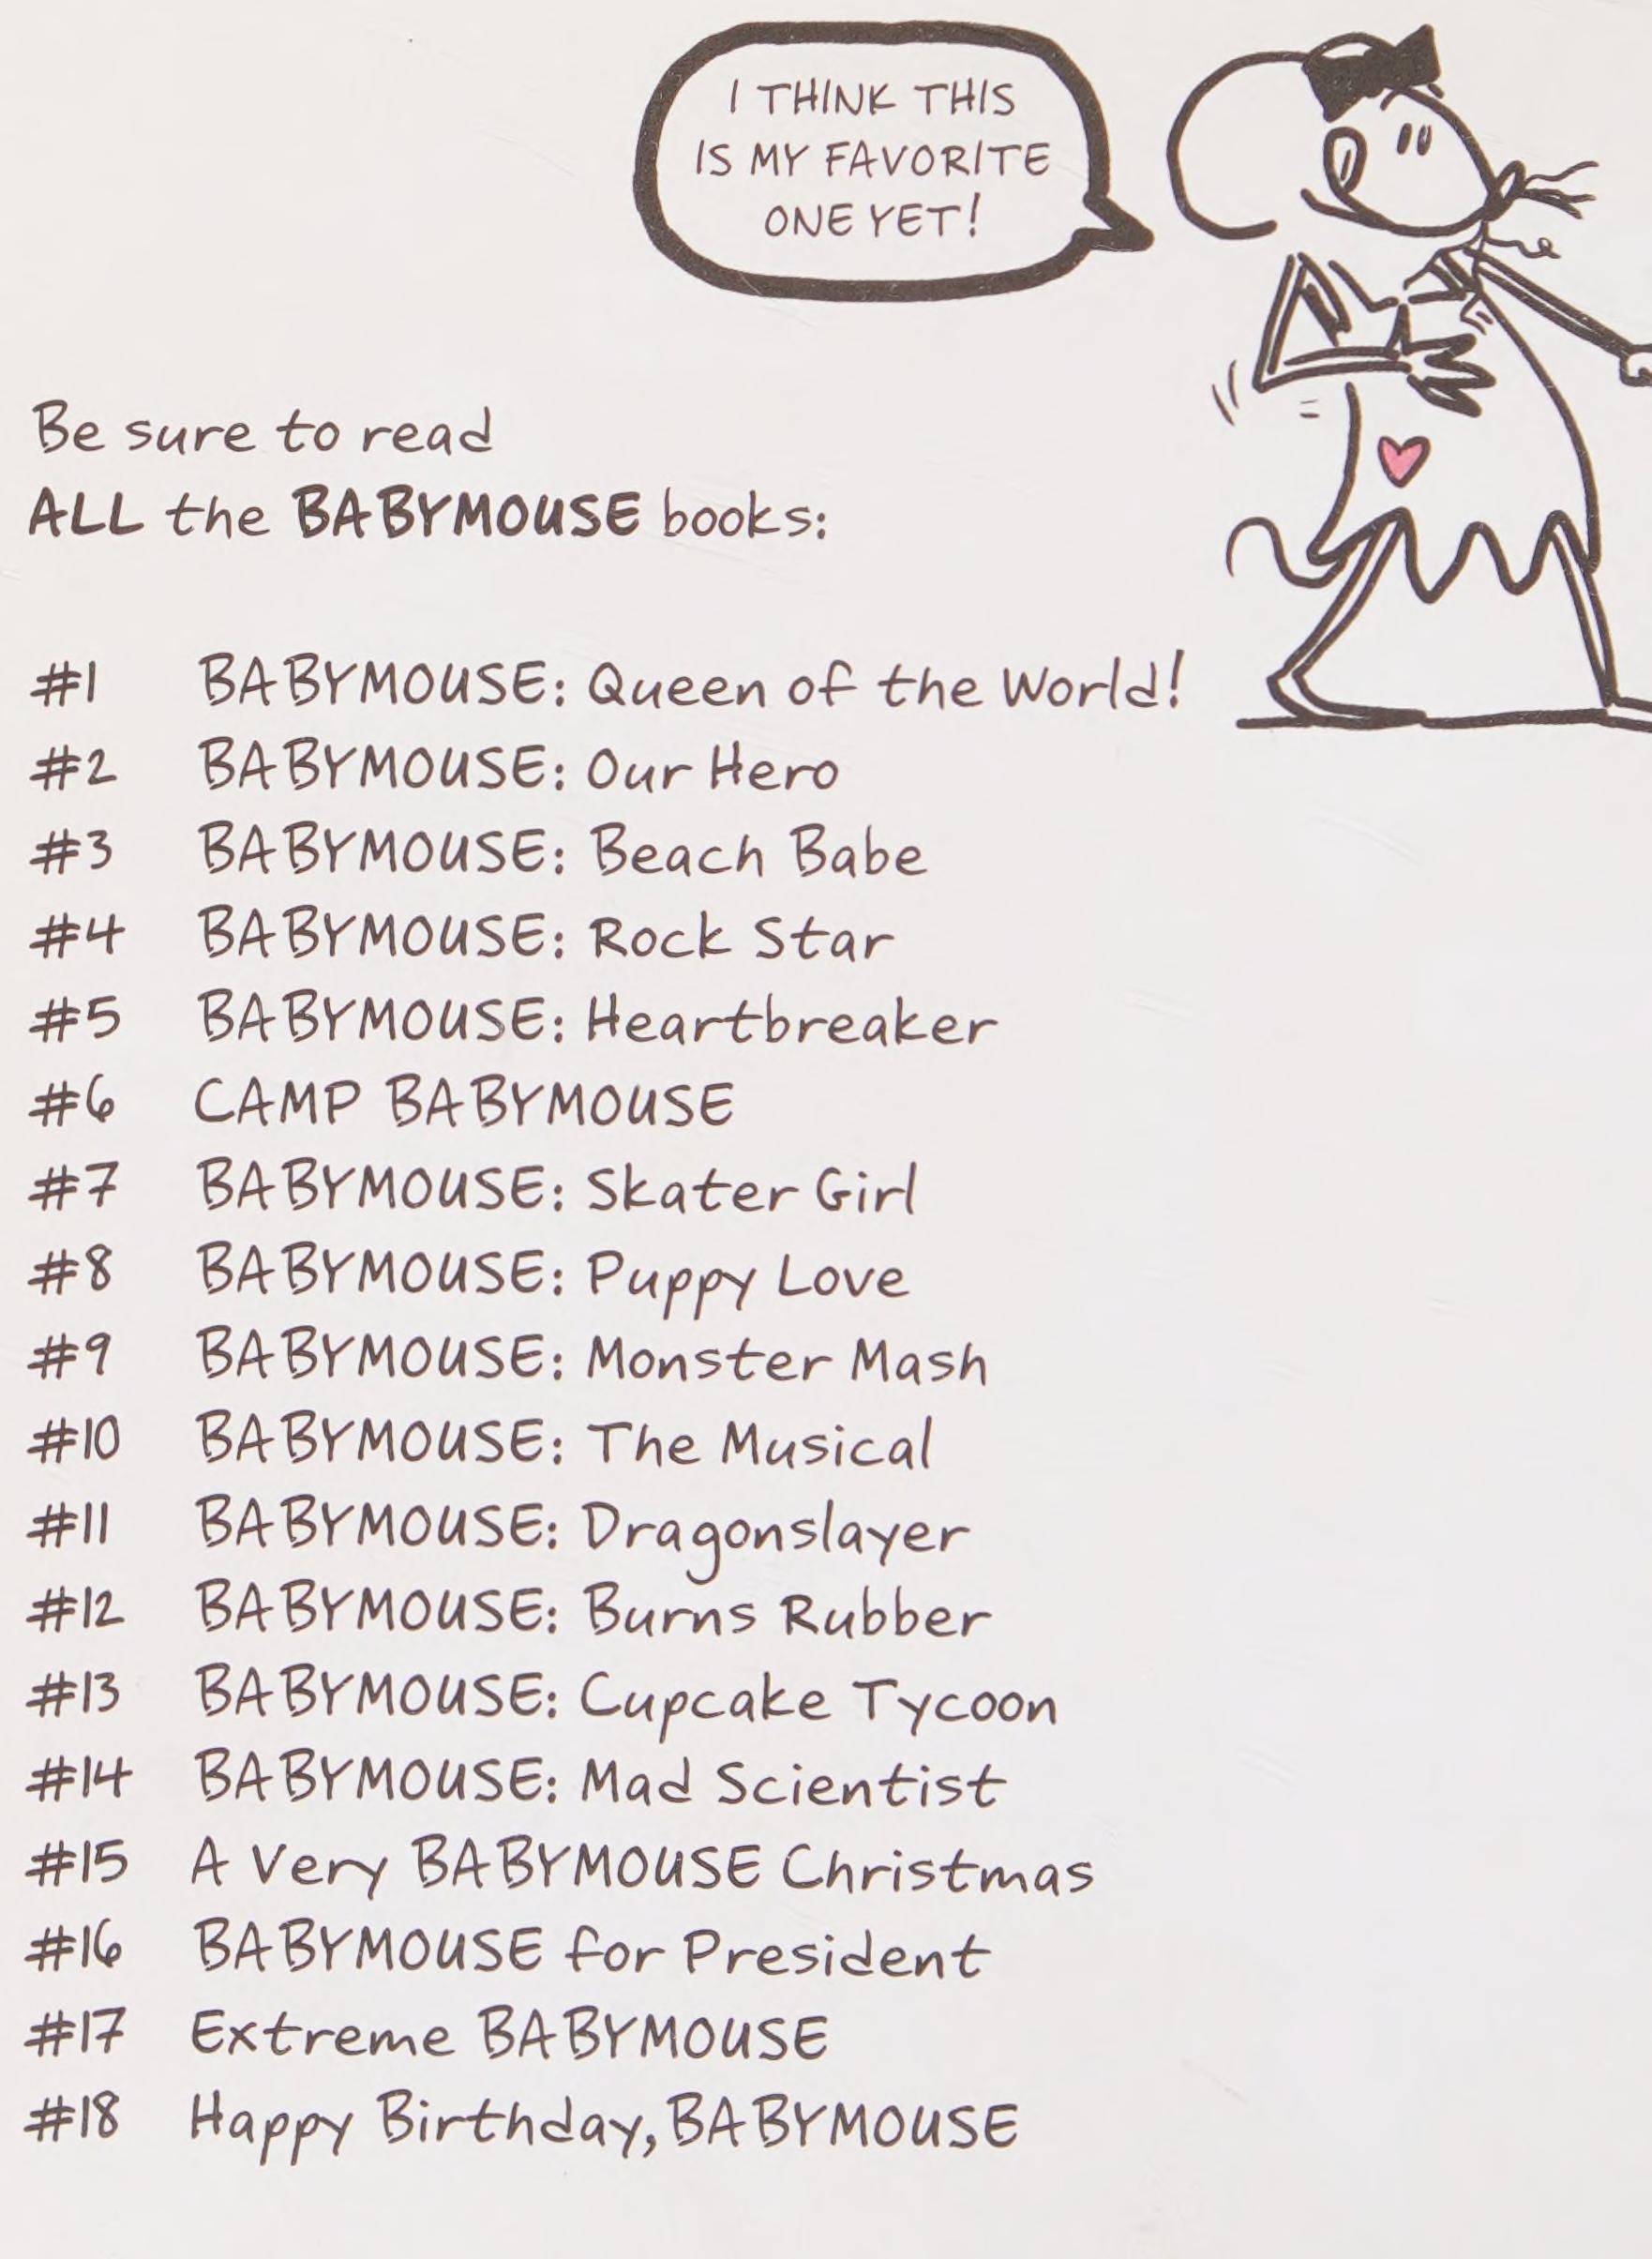 I THINK THIS
IS MY FAVORITE
ONE YET!
Be sure to read
ALL the BABYMOUSE books:
#1 BABYMOUSE: Queen of the World!
#2 BABYMOUSE: Our Hero
#3 BABYMOUSE: Beach Babe
#4 BABYMOUSE: Rock Star
#5 BABYMOUSE: Heartbreaker
#6 CAMP BABYMOUSE
#7 BABYMOUSE: Skater Girl
#8 BABYMOUSE: Puppy Love
#9 BABYMOUSE: Monster Mash
#10 BABYMOUSE: The Musical
#11 BABYMOUSE: Dragonslayer
#12 BABYMOUSE: Burns Rubber
#13 BABYMOUSE: Cupcake Tycoon
#14 BABYMOUSE: Mad Scientist
#15 A Very BABYMOUSE Christmas
#16 BABYMOUSE for President
#17 Extreme BABYMOUSE
#18 Happy Birthday, BABYMOUSE